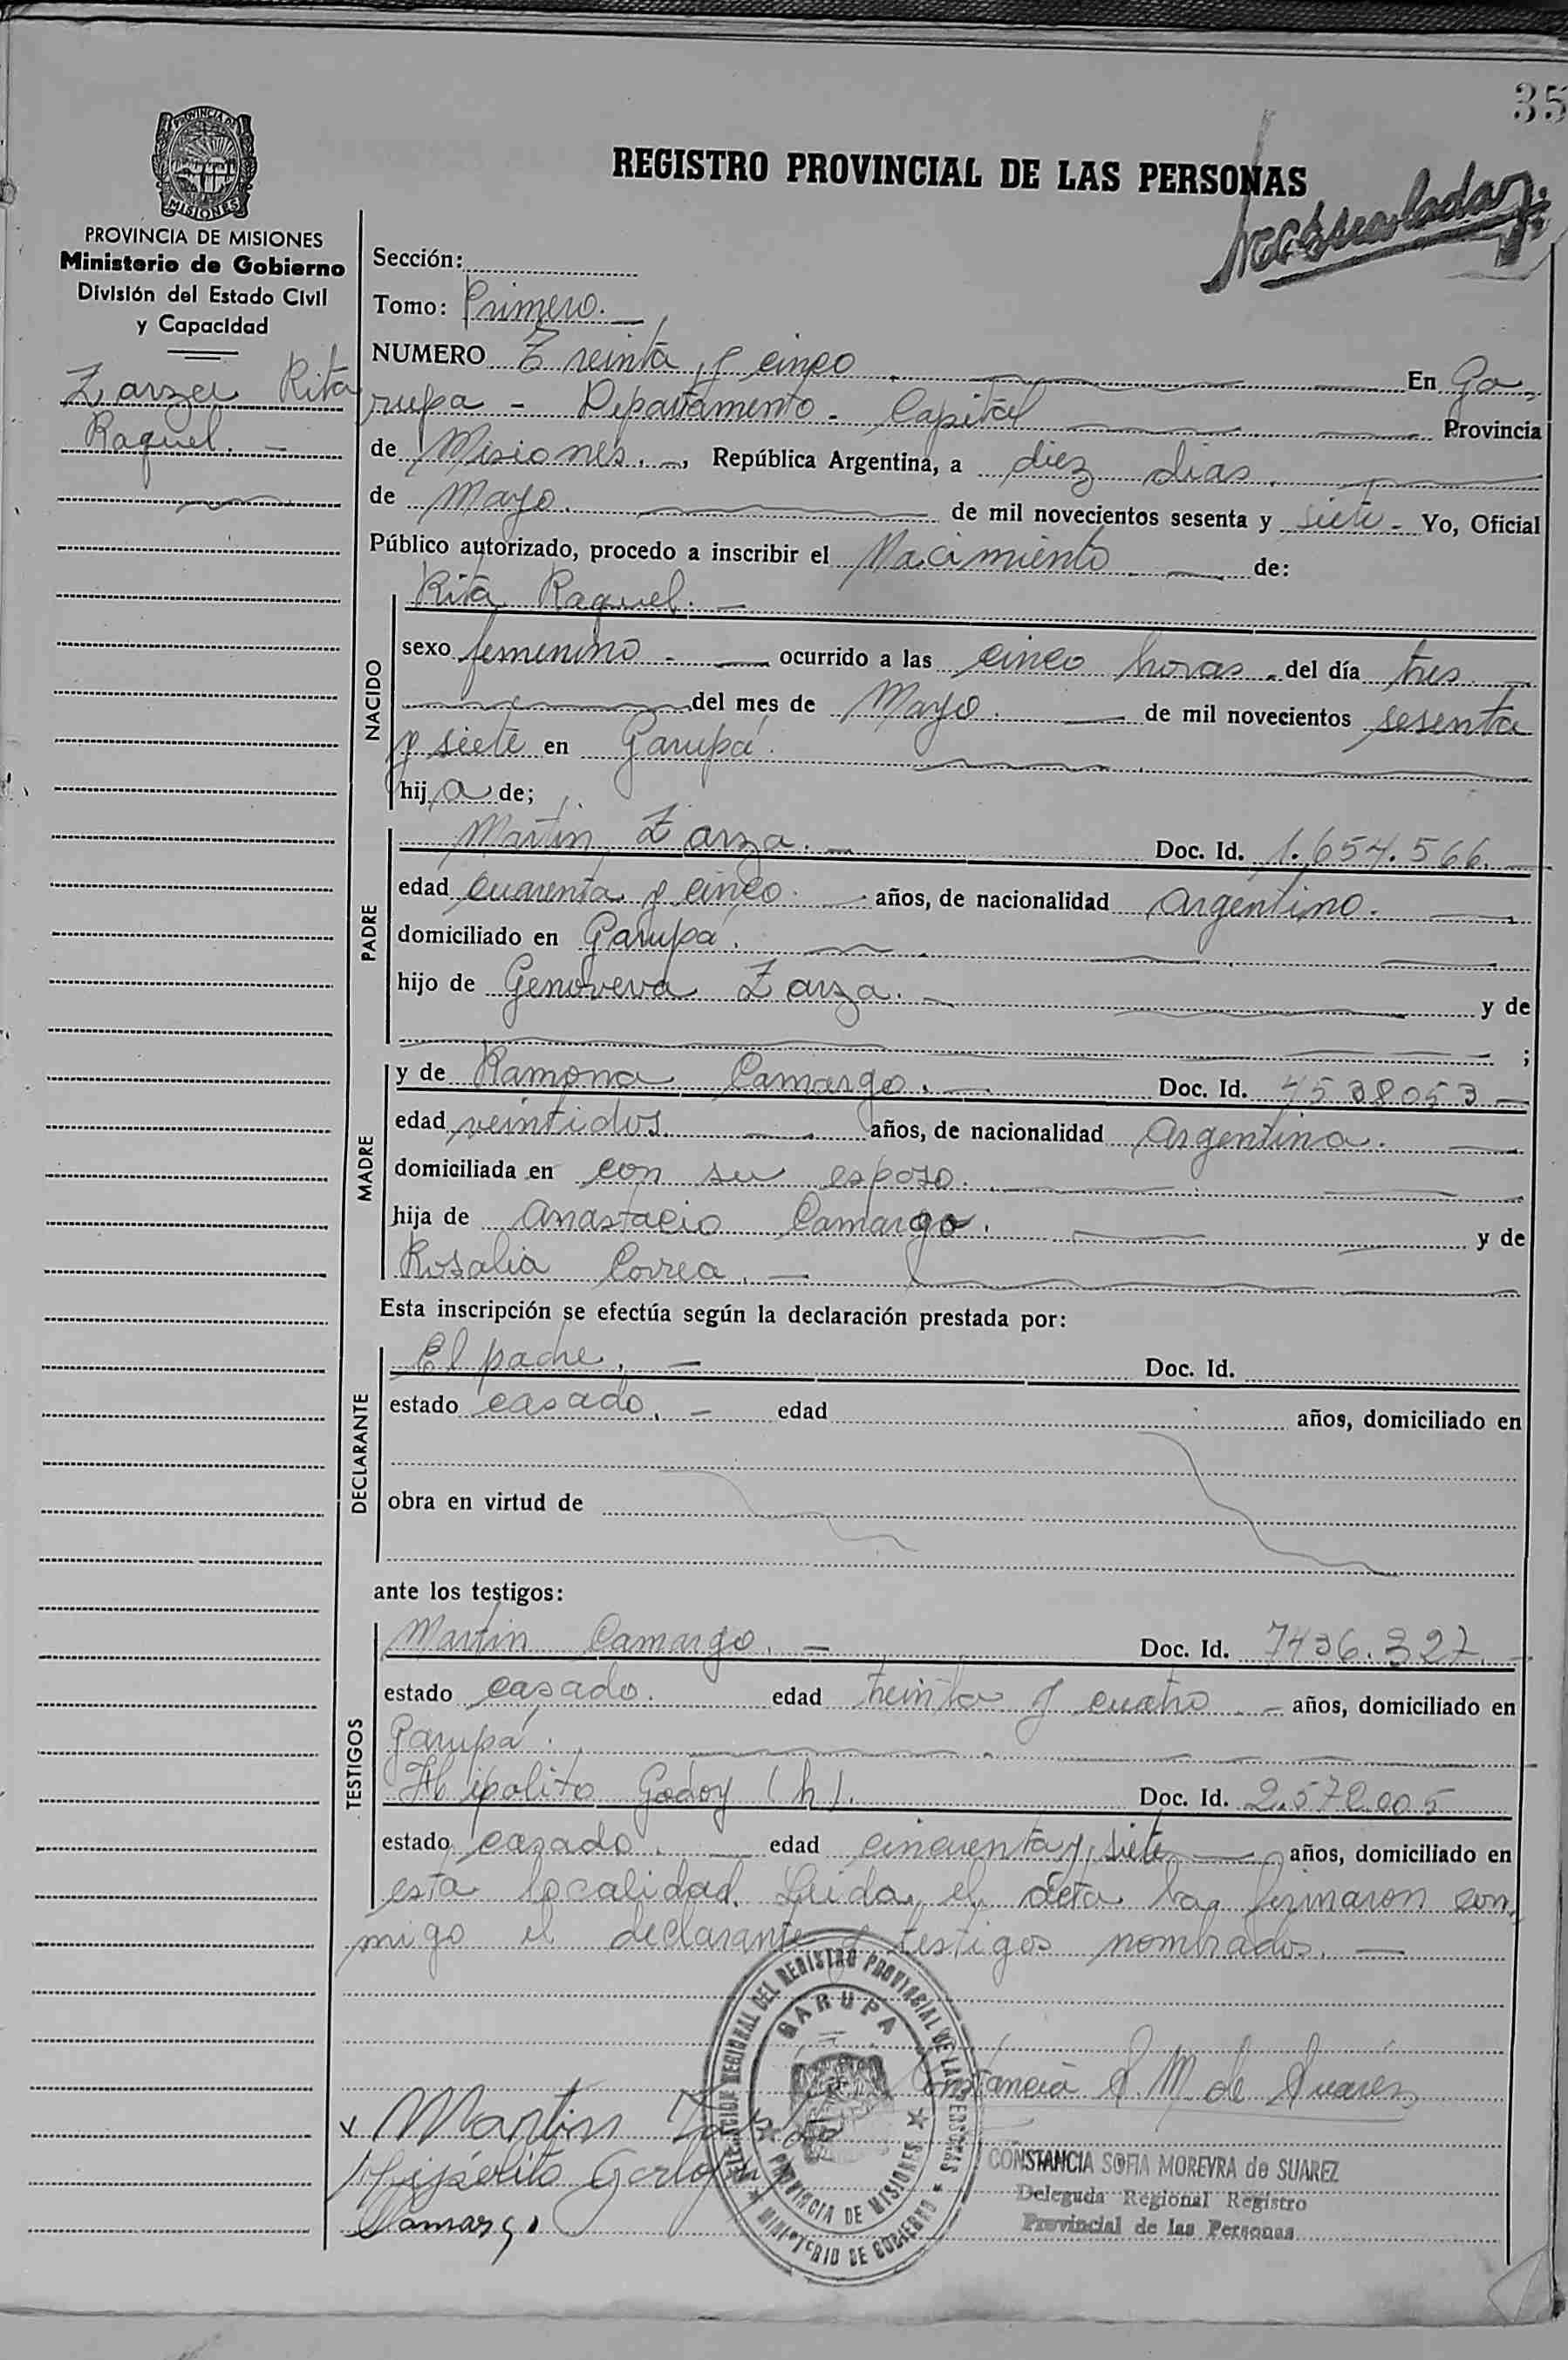 35
REGISTRO PROVINCIAL DE LAS PERSONAS
PROVINCIA DE
MISIONES
PROVINCIA DE MISIONES
Ministerio de Gobierno
División del Estado Civil
y Capacidad
Zarza Rita
Raquel. -
Sección:
Tomo: Primero. -
NUMERO Treinta y cinco. En Ga-
rupa - Departamento - Capital Provincia
de Misiones. -, República Argentina, a diez dias
de Mayo. de mil novecientos sesenta y siete - Yo, Oficial
Público autorizado, procedo a inscribir el Nacimiento. - de:
NACIDO
Rita Raquel. -
sexo femenino - ocurrido a las cinco horas. del día tres
del mes de Mayo. de mil novecientos sesenta
y siete en Garupá.
hija de;
PADRE
Martin Zarza. - Doc. Id. 1.654.566.
edad cuarenta y cinco. años, de nacionalidad argentino.
domiciliado en Garupá.
hijo de Genoveva Zarza. - y de
;
MADRE
y de Ramona Camargo. - Doc. Id. 4538053 -
edad veintidos. años, de nacionalidad argentina.
domiciliada en con su esposo.
hija de Anastacio Camargo. y de
Rosalia Correa. -
Esta inscripción se efectúa según la declaración prestada por:
DECLARANTE
El padre. - Doc. Id.
estado casado. - edad años, domiciliado en
obra en virtud de
ante los testigos:
TESTIGOS
Martin Camargo. - Doc. Id. 7436.327
estado casado. edad treinta y cuatro. - años, domiciliado en
Garupá.
Hipolito Godoy (h). Doc. Id. 2.572.005
estado casado. edad cincuenta y siete años, domiciliado en
esta localidad. Leida el acta la firmaron con-
migo el declarante y testigos nombrados. -
DELEGACION REGIONAL DEL REGISTRO PROVINCIAL DE LAS PERSONAS
GARUPA
PROVINCIA DE MISIONES
MINISTERIO DE GOBIERNO
Constancia S. M. de Suarez
x Martin Zarza
Hipólito Godoy
Camargo
CONSTANCIA SOFIA MOREYRA de SUAREZ
Delegada Regional Registro
Provincial de las Personas